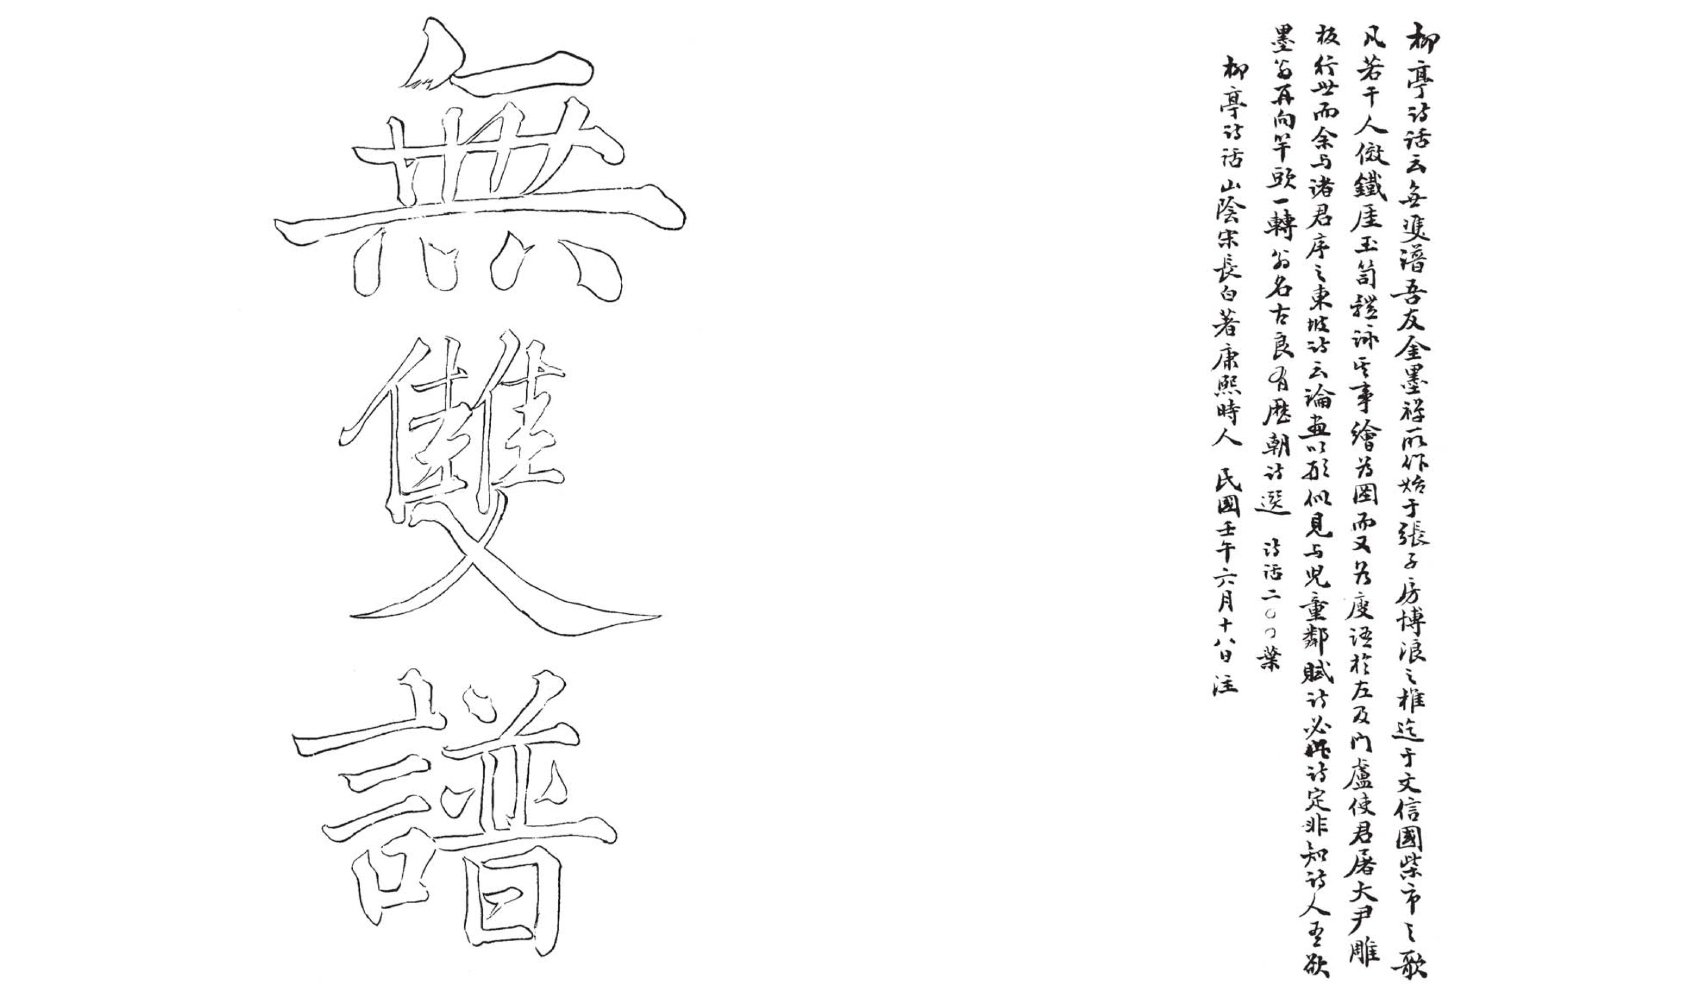 柳亭诗话云無雙譜吾友金墨禅所作始于張子房博浪之椎迄于文信國柴市之歌
凡若干人倣鐵崖玉笥體詠其事繪為圖而又為廋語於左及門盧使君屠大尹雕
板行世而余与诸君序之東坡诗云論畫以形似見与児童鄰賦诗必此诗定非知诗人吾欲
墨翁再向竿頭一轉翁名古良有歷朝诗選 诗话二〇〇葉
柳亭诗话山陰宋長白著康熙時人 民國壬午六月十八日注
無雙譜